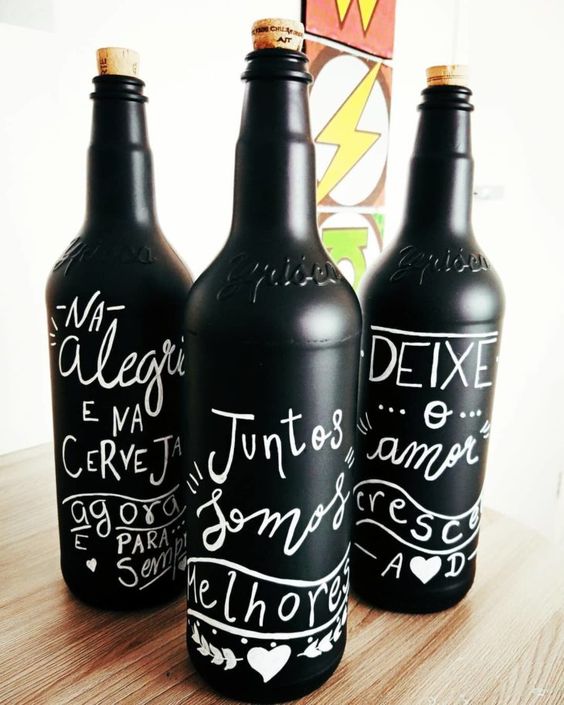 Ypióca
NA
Alegri
E NA
CERVEJA
agora
E PARA...
Sempr
Ypióca
Juntos
somos
Melhores
Ypióca
DEIXE
... O ...
amor
crescer
A ♥ D